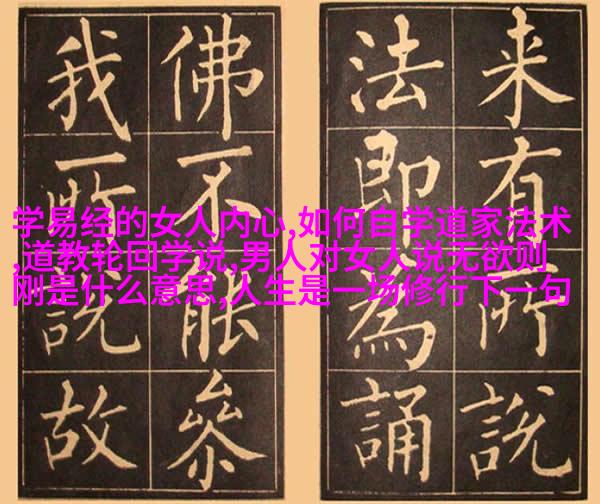 来有所說
法即為誦
佛不能參
我所說故
学易经的女人内心,如何自学道家法术
,道教轮回学说,男人对女人说无欲则
刚是什么意思,人生是一场修行下一句